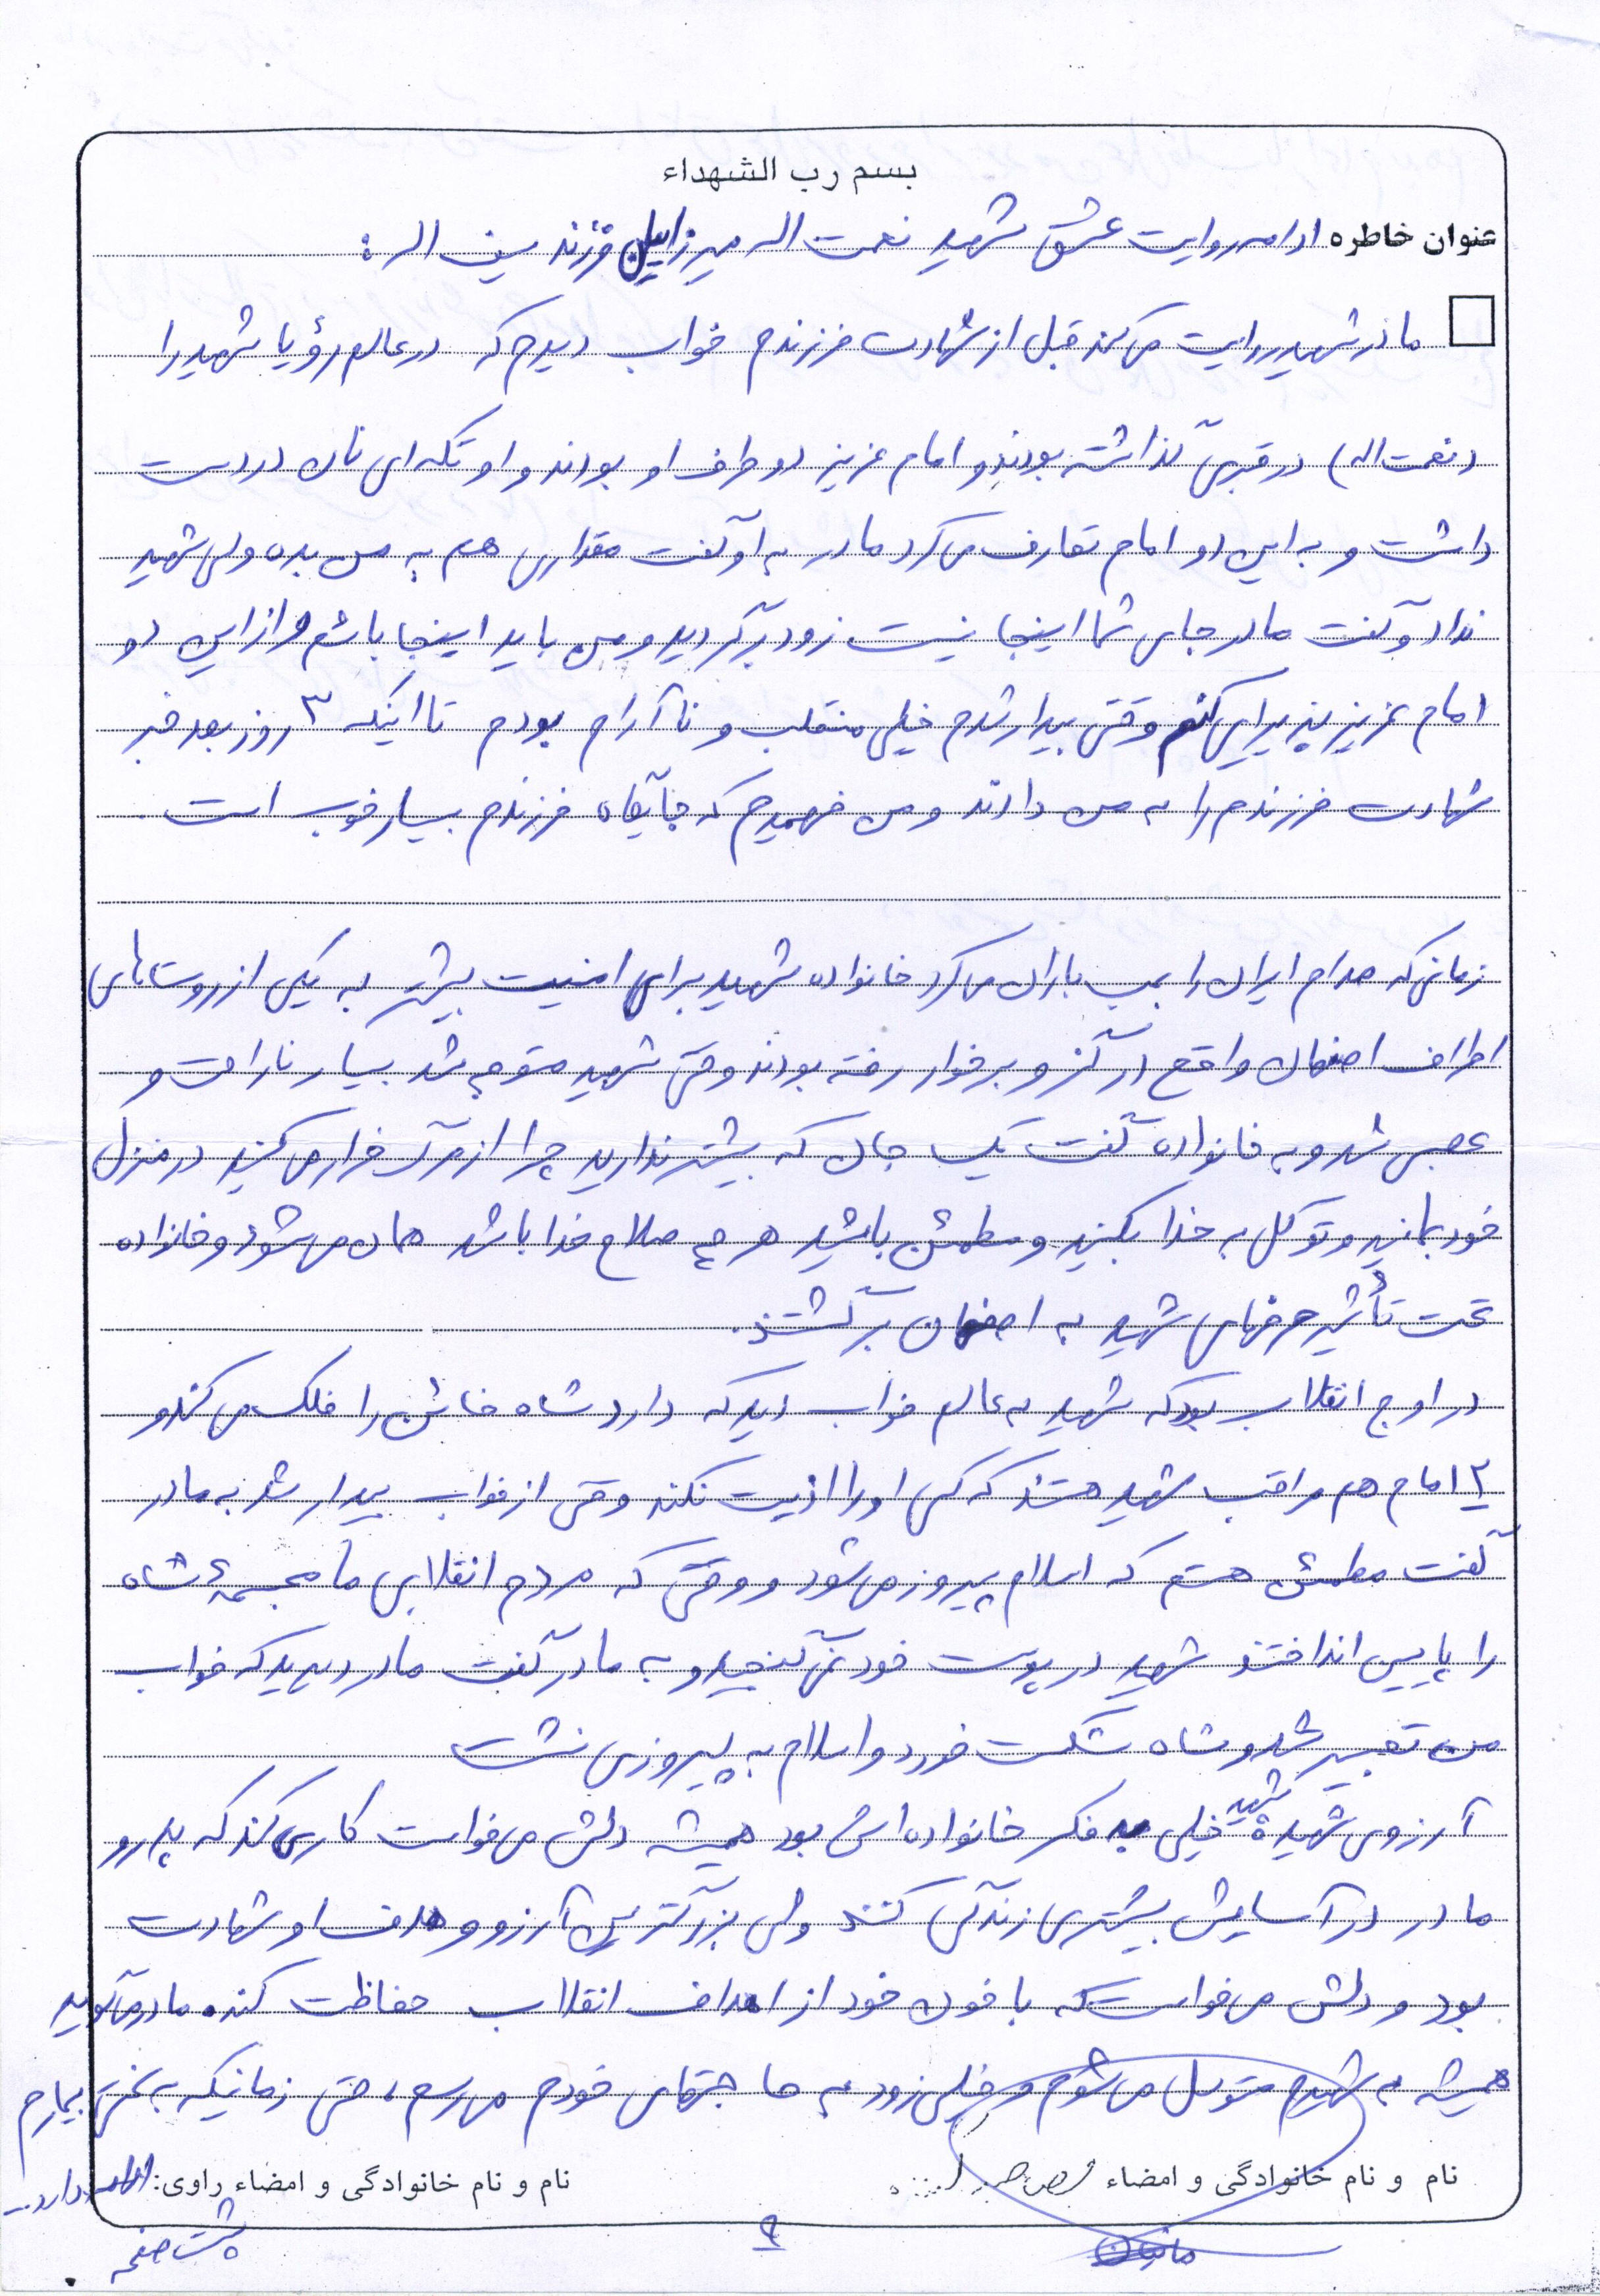 بسم رب الشهداء
عنوان خاطره ادامه روایت عشق شهید نعمت اله میرزایی فرزند سیف اله :
مادر شهید روایت می‌کند قبل از شهادت فرزندم خواب دیدم که در عالم رؤیا شهید را
(نعمت اله) در قبری گذاشته بودند و امام عزیز دو طرف او بودند و او تکه ای نان در دست
داشت و به این دو امام تعارف می‌کرد مادر به او گفت مقداری هم به من بده ولی شهید
نداد و گفت مادر جای شما اینجا نیست زود برگردید و من باید اینجا باشم و از این دو
امام عزیز پذیرایی کنم وقتی بیدار شدم خیلی منقلب و ناآرام بودم تا اینکه ۳ روز بعد خبر
شهادت فرزندم را به من دادند و من فهمیدم که جایگاه فرزندم بسیار خوب است.
زمانی که صدام ایران را بمب باران می‌کرد خانواده شهید برای امنیت بیشتر به یکی از روستاهای
اطراف اصفهان واقع در گز و برخوار رفته بودند وقتی شهید متوجه شد بسیار ناراحت و
عصبی شد و به خانواده گفت یک جان که بیشتر ندارید چرا از مرگ فرار می‌کنید در منزل
خود بمانید و توکل به خدا بکنید و مطمئن باشید هر چه صلاح خدا باشد همان می‌شود و خانواده
تحت تأثیر حرفهای شهید به اصفهان برگشتند.
در اوج انقلاب بود که شهید به عالم خواب دید که دارد شاه خائن را فلک می‌کند و
۲ امام هم مراقب شهید هستند که کسی او را اذیت نکند وقتی از خواب بیدار شد به مادر
گفت مطمئن هستم که اسلام پیروز می‌شود و وقتی که مردم انقلابی ما مجسمهٔ شاه
را پایین انداختند شهید در پوست خود نمی‌گنجید و به مادر گفت مادر دیدید که خواب
من تعبیر شد و شاه شکست خورد و اسلام به پیروزی نشست
آرزوی شهید: شهید خیلی به فکر خانواده اش بود همیشه دلش می‌خواست کاری کند که پدر و
مادر در آسایش بیشتری زندگی کنند ولی بزرگترین آرزو و هدف او شهادت
بود و دلش می‌خواست که با خون خود از اهداف انقلاب حفاظت کند. مادر می‌گوید
همیشه به شهیدم متوسل می‌شوم و خیلی زود به حاجتهای خودم می‌رسم، حتی زمانیکه به سختی بیمارم
نام و نام خانوادگی و امضاء
نام و نام خانوادگی و امضاء راوی: ادامه دارد...
پشت صفحه
۹